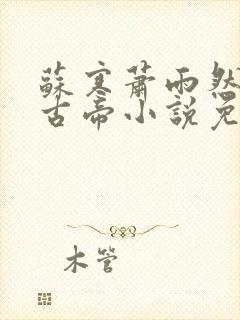 蘇寒蕭雨然
古帝小說免
木管